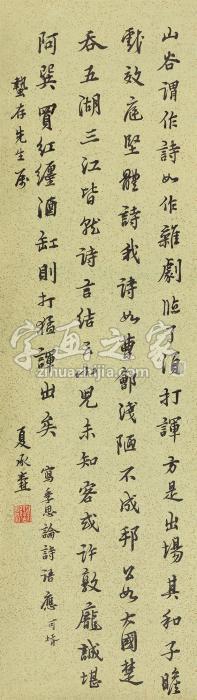 山谷谓作詩如作雜劇臨了須打諢方是出場其和子瞻
戲效庭堅體詩我詩如曹鄶淺陋不成邦公如大國楚
吞五湖三江皆就詩言結云小兒未知客或許敦龐誠堪
阿巽買紅纏酒缸則打猛諢出矣
寫季思論詩語應
蟄存先生屬
夏承燾
字画之家
zihuazhijia.com